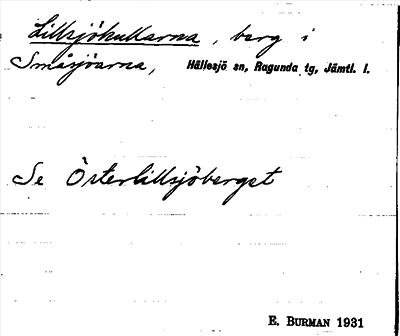 Lillsjökullarna, berg i
Småsjöarna, Hällesjö sn, Ragunda tg, Jämtl. l.
Se Österlillsjöberget
E. BURMAN 1931